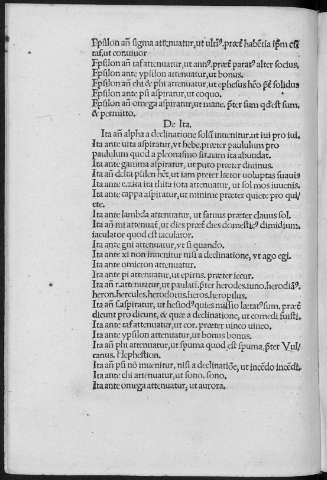 Epsilon añ sigma attenuatur, ut ulm⁹. præť habētia tp̄m est
tas, ut conuiuor
Epsilon añ taf attenuatur, ut ann⁹. præť parat⁹ alter socius.
Epsilon ante ypsilon attenuatur, ut bonus.
Epsilon añ chi & phi attenuatur, ut ephesus hēo p̄ť solidus
Epsilon ante psi aspiratur, ut coquo.
Epsilon añ omega aspiratur, ut mane. p̄ter sum qd est sum,
& permitto.
De Ita.
Ita añ alpha a declinatione solū inuenitur, ut iui pro iui,
Ita ante uita aspiratur, ut hebe. præter paululum pro
paululum quod a pleonasmo sit, nam ita abundat.
Ita ante gamma aspiratur, ut puto præter diuinus.
Ita añ delta psilen hēt, ut iam præter lætor uoluptas suauis
Ita ante e.zita ita thita iota attenuatur, ut sol mos iuuenis.
Ita ante cappa aspiratur, ut minime præter quiete pro qui/
ete.
Ita ante lambda attenuatur, ut fatuus præter clauus sol.
Ita añ mi attenuať, ut dies præeť dies domestic⁹ dimidium,
iaculator quod est iaculator.
Ita ante gni attenuatur, ut si quando.
Ita ante xi non inuenitur nisi a declinatione, ut ago egi.
Ita ante omicron attenuatur.
Ita ante pi attenuatur, ut epirus. præter iecur.
Ita añ r. attenuatur, ut paulati. p̄ter herodes. iuno. herodiā⁹.
heron. hercules. herodotus. heros. herophilus.
Ita añ s aspiratur, ut hesiod⁹ quies missio lætat⁹ sum, præeť
dicunt pro dicunt, & quæ a declinatione, ut comedi fuisti.
Ita ante taf attenuatur, ut cor. præter uinco uinco.
Ita ante ypsilon attenuatur, ut bonus bonus.
Ita añ phi attenuatur, ut spuma quod est spuma. p̄ter Vul/
canus. Hephestion.
Ita añ psi nō inuenitur, nisi a declinatiōe, ut incēdo incēdi.
Ita ante chi attenuatur, ut sono. sono.
Ita ante omega attenuatur, ut aurora.